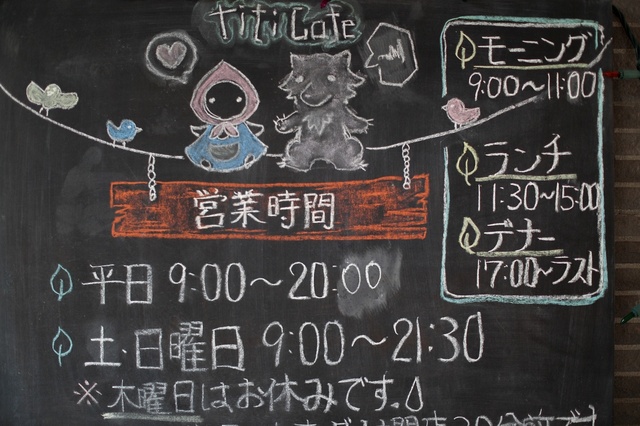 titi Cafe
営業時間
平日 9:00〜20:00
土・日曜日 9:00〜21:30
※木曜日はお休みです。
モーニング
9:00〜11:00
ランチ
11:30〜15:00
デナー
17:00〜ラスト